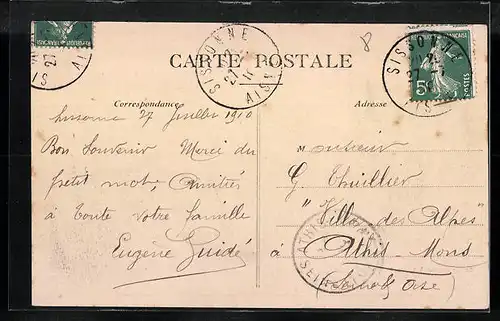 8
SISSONNE
AISNE
27
CARTE POSTALE
SISSONNE
27
5c
POSTES
Correspondance
Adresse
Sissonne 27 Juillet 1910
Bon Souvenir Merci du
petit mot, Amitiés
à toute votre famille
Eugène Guidé
Monsieur
G. Thuillier
"Villa des Alpes"
à Athis-Mons
(Seine & Oise)
ATHIS